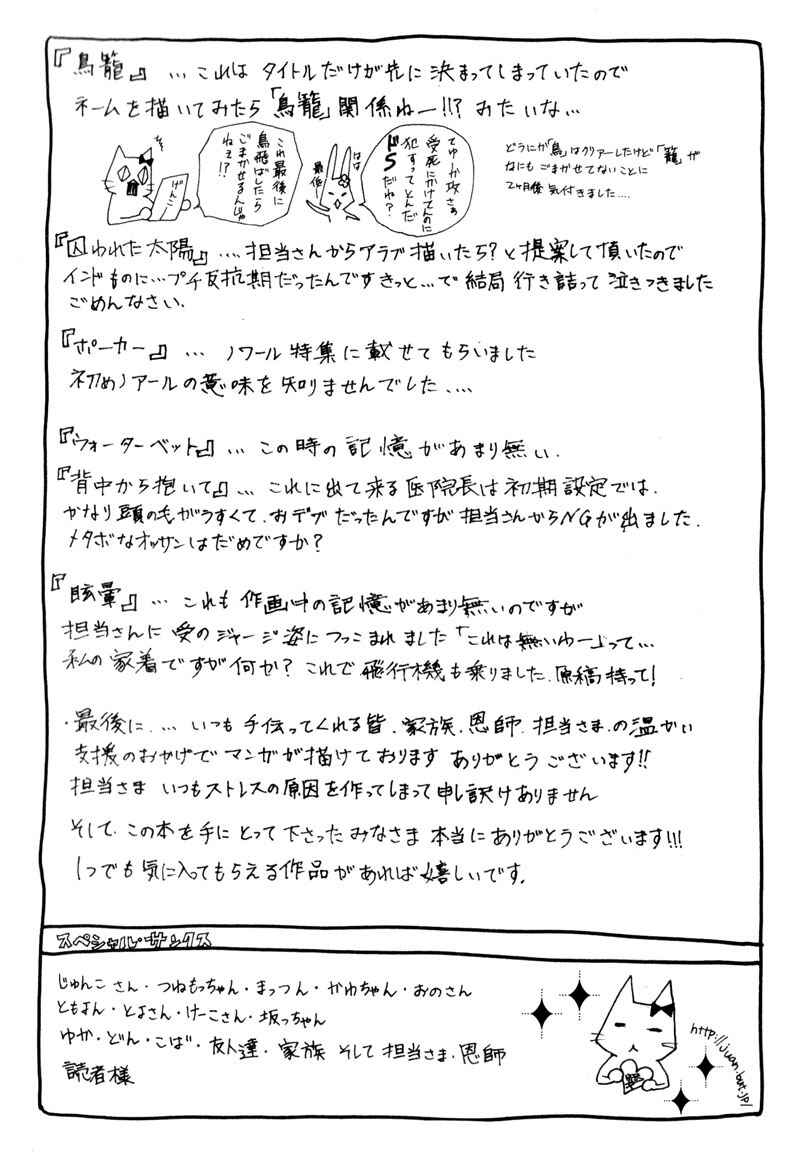 『鳥籠』…これは タイトルだけが先に 決まってしまっていたので
ネームを描いてみたら「鳥籠」関係ねー!!? みたいな…
げんこ
これ最後に
鳥飛ばしたら
ごまかせるんじゃ
ねェ!?
はは
最低ー
てゆーか攻さぁ
受死にかけてんのに
犯すってとんだ
ドSだね?
どうにか「鳥」はクリアーしたけど「籠」が
なにも ごまかせてないことに
2ヶ月後 気付きました….
『囚われた太陽』….担当さんからアラブ描いたら?と提案して頂いたので
インドものに…プチ反抗期だったんですきっと…で 結局 行き詰って 泣きつきました
ごめんなさい.
『ポーカー』… ノワール特集に載せてもらいました
初めノアールの意味を知りませんでした….
『ウォーターベット』… この時の記憶があまり無い.
『背中から抱いて』… これに出て来る医院長は初期設定では.
かなり頭の毛がうすくて.おデブ だったんですが 担当さんからNGが出ました.
メタボなオッサンはだめですか?
『眩暈』… これも 作画中の記憶があまり無いのですが
担当さんに 受のジャージ姿につっこまれました「これは無いわー」って…
私の家着ですが何か? これで 飛行機も乗りました.原稿持って!
・最後に…. いつも 手伝ってくれる皆.家族.恩師.担当さま.の温かい
支援のおかげで マンガが描けております ありがとう ございます!!
担当さま いつもストレスの原因を作ってしまって申し訳けありません
そして.この本を手にとって下さったみなさま 本当にありがとうございます!!!
1つでも気に入ってもらえる作品があれば嬉しいです.
スペシャル・サンクス
じゅんこさん・つねもっちゃん・まっつん・かわちゃん・おのさん
ともよん・とよさん・けーこさん・坂っちゃん
ゆか・どん・こば・友人達.家族 そして 担当さま.恩師
読者様
http://juan-bat.jp/